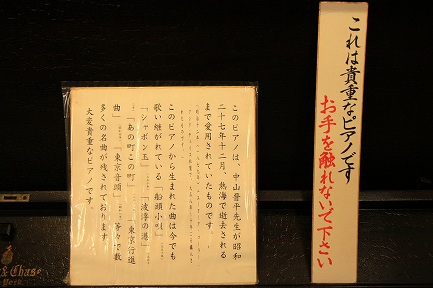 これは貴重なピアノです
お手を触れないで下さい
このピアノは、中山晋平先生が昭和
二十七年十二月、熱海で逝去される
まで愛用されていたものです。
このピアノから生まれた曲は今でも
歌い継がれている「船頭小唄」
「シャボン玉」「波浮の港」
「あの町この町」「東京行進
曲」「東京音頭」等々で数
多くの名曲が残されております
大変貴重なピアノです。
& Chase